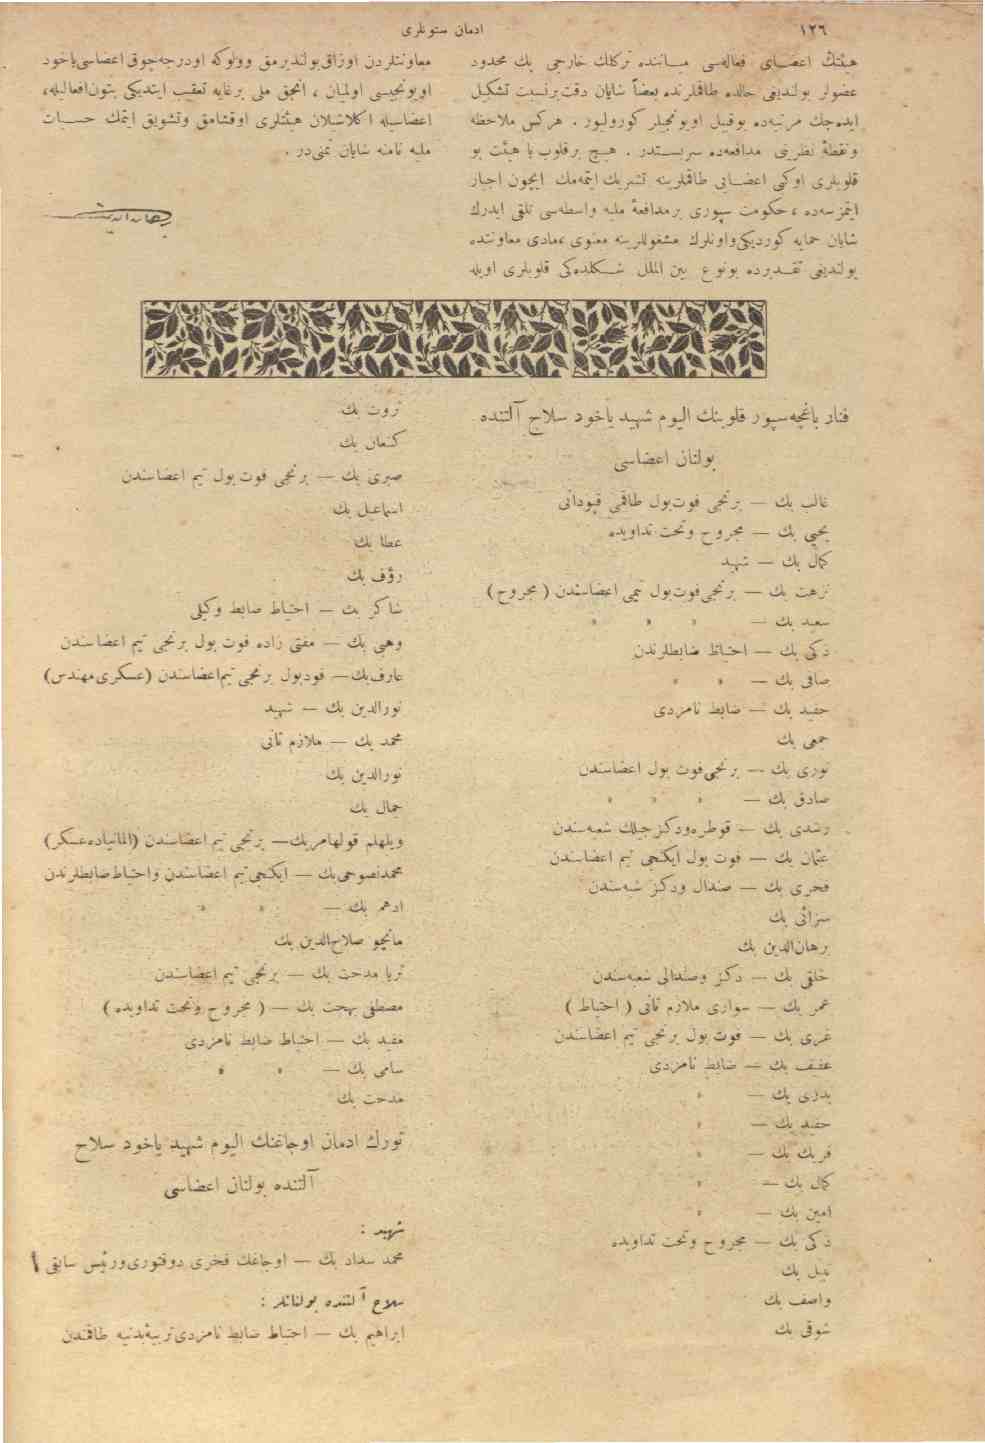 ١٢٦
ادمان ستونلری
هیئتك اعضای فعاله‌سی میاننده تركلك خارجی بك محدود
عضولر بولندیغی حالده طاقملرنده بعضاً شایان دقت برنسبت تشكیل
ایده‌جك مرتبه‌ده بوقبیل اویونجیلر كورولیور . هركس ملاحظه
ونقطهٔ نظرینی مدافعه‌ده سربستدر . هیچ برقلوب یا هیئت بو
قلوبلری اوكی اعضایی طاقملرینه تشریك ایتمه‌مك ایچون اجبار
ایتمزسه‌ده ، حكومت سپوری برمدافعهٔ ملیه واسطه‌سی تلقی ایدرك
شایان حمایه كوردیكی واونلرك مشغوللرینه معنوی ،مادی معاونتده
بولندیغی تقدیرده بونوع بین الملل شكلده‌كی قلوبلری اویله
معاونتلردن اوزاق بولندیرمق وولوكه اودرجه‌چوق اعضاسی یاخود
اویونجیسی اولمیان ، انجق ملی برغایه تعقیب ایتدیكی بتون‌افعالیله،
اعضاسیله اكلاشیلان هیئتلری اوقشامق وتشویق ایتمك حسیات
ملیه نامنه شایان تمنی‌در .
جهاندار اندیشه
فنار باغچه‌سپور قلوبنك الیوم شهید یاخود سلاح آلتنده
بولنان اعضاسی
غالب بك — برنجی فوت‌بول طاقمی قپودانی
یحیی بك — مجروح وتحت تداویده
كمال بك — شهید
نزهت بك — برنجی‌فوت‌بول تیمی اعضاسندن ( مجروح )
سعید بك — » » »
ذكی بك — احتیاط ضابطلرندن
صافی بك — » »
حفید بك — ضابط نامزدی
جمعی بك
نوری بك — برنجی‌فوت بول اعضاسندن
صادق بك — » » »
رشدی بك — قوطره‌ودكزجیلك شعبه‌سندن
عثمان بك — فوت بول ایكنجی تیم اعضاسندن
فخری بك — صندال ودكز شبه‌سندن
سزائی بك
برهان‌الدین بك
خلقی بك — دكز وصندالی شعبه‌سندن
عمر بك — سواری ملازم ثانی ( احتیاط )
غری بك — فوت بول برنجی تیم اعضاسندن
عفیف بك — ضابط نامزدی
بدری بك — »
حفید بك — »
فربك بك — »
كمال بك — »
امین بك — »
ذكی بك — مجروح وتحت تداویده
نبیل بك
واصف بك
شوقی بك
ثروت بك
كنعان بك
صبری بك — برنجی فوت بول تیم اعضاسندن
اسماعیل بك
عطا بك
رؤف بك
شاكر بك — احتیاط ضابط وكیلی
وهبی بك — مفتی زاده فوت بول برنجی تیم اعضاسندن
عارف‌بك— فوت‌بول برنجی تیم‌اعضاسندن (عسكری‌مهندس)
نورالدین بك — شهید
محمد بك — ملازم ثانی
نورالدین بك
جمال بك
ویلهلم قولهامر بك— برنجی تیم اعضاسندن (المانیاده‌عسكر)
محمدنصوحی‌بك — ایكنجی‌تیم اعضاسندن واحتیاط‌ضابطلرندن
ادهم بك — » »
مانچو صلاح‌الدین بك
ثریا مدحت بك — برنجی تیم اعضاسندن
مصطفی بهجت بك — ( مجروح وتحت تداویده )
مفید بك — احتیاط ضابط نامزدی
سامی بك — » »
مدحت بك
تورك ادمان اوجاغنك الیوم شهید یاخود سلاح
آلتنده بولنان اعضاسی
شهید :
محمد سداد بك — اوجاغك فخری دوقتوری‌ورئیس سابقی
سلاح آلتنده بولنانلر :
ابراهیم بك — احتیاط ضابط نامزدی‌تربیهٔ‌بدنیه طاقمندن